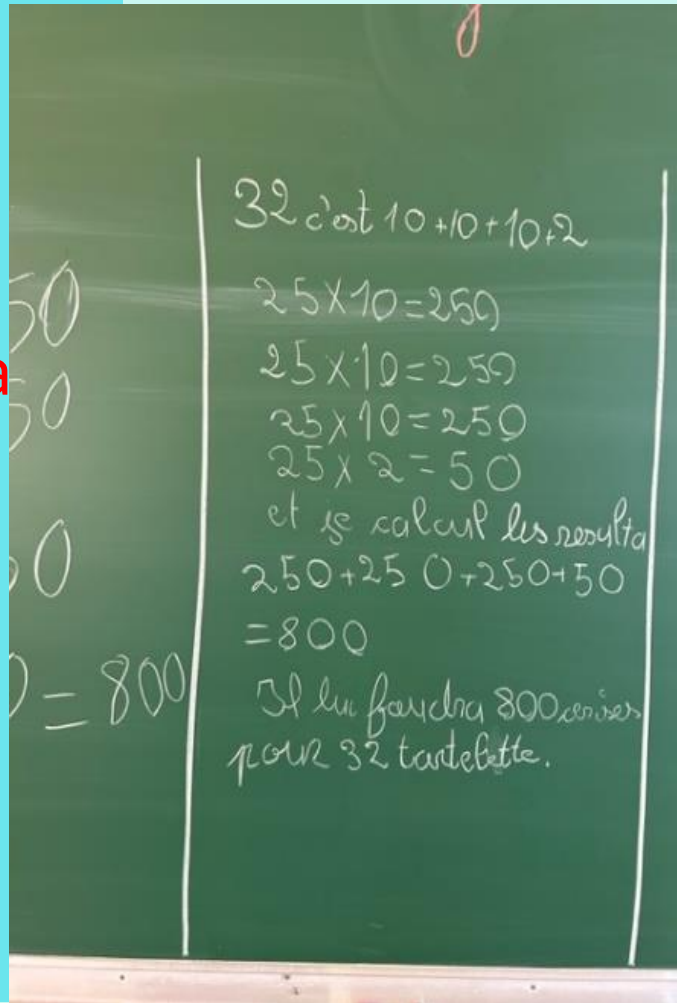 a
50
50
0
0 = 800
32 c'est 10+10+10+2
25×10=250
25×10=250
25×10=250
25×2=50
et je calcul les resulta
250+250+250+50
=800
Il lui faudra 800 cerises
pour 32 tartelette.